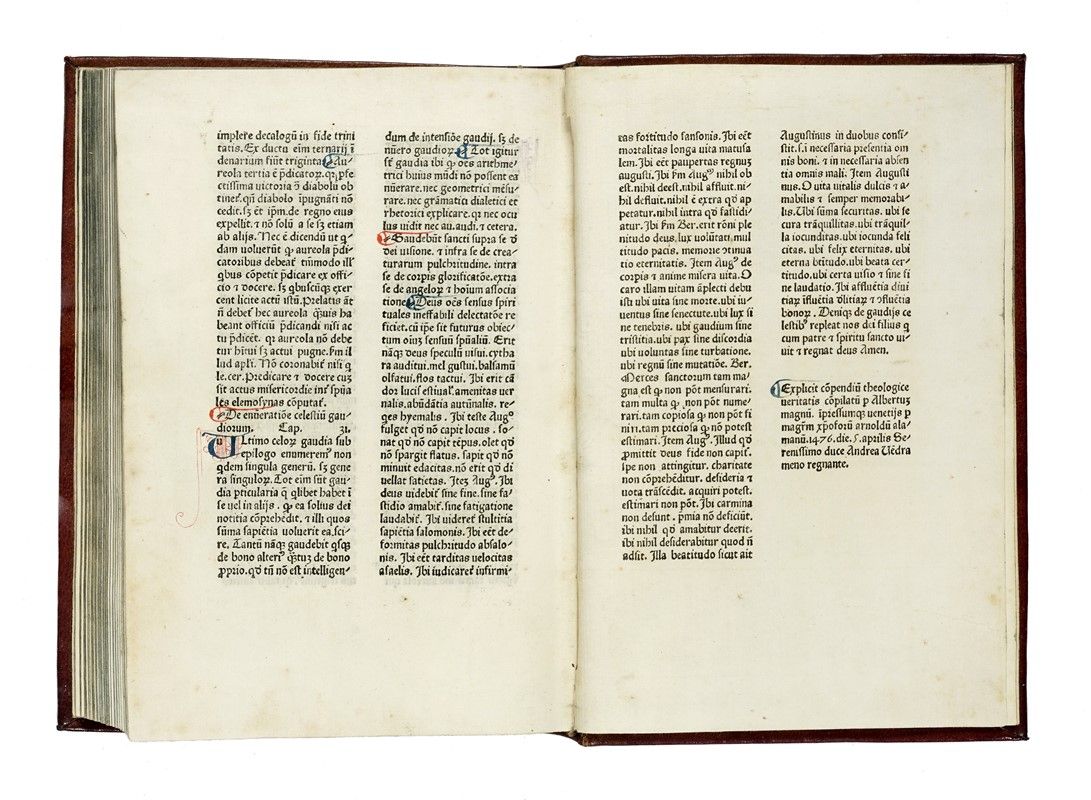 implere decalogū in fide trini
tatis. Ex ductu eīm ternarij ī
denarium fiūt triginta. Au-
reola tertia ē p̄dicatoꝝ. qꝛ ꝑfe
ctissima victoria ꝰ diaboli ob
tinet᷑. qñ diabolo īpugnāti nō
cedit. sꝫ ēt ip̄m. de regno eius
expellit. ⁊ nō solū a se sꝫ etiam
ab alijs. Nec ē dicendū ut q̄-
dam voluerūt ꝙ aureola p̄di-
catoribus debeat᷑ tūmodo ill᷑
qbus cōpetit p̄dicare ex offi-
cio ⁊ docere. sꝫ qbuscūqꝫ exer-
cent licite actū istū. Prelatis āt
ñ debet᷑ hec aureola q̄uis ha
beant officiū p̄dicandi nisi ac
tu p̄dicēt. qꝛ aureola nō debe
tur hītui sꝫ actui pugne. fm il
lud apl'i. Nō coronabit᷑ nisi q
le. cer. Predicare ⁊ docere cuꝫ
sit actus misericordie int᷑ spūa
les elemosynas cōputat᷑.
De enūeratiōe celestiū gau-
diorum. Cap. 31.
Ultimo celoꝝ gaudia sub
epilogo enumerem᷑ non
qdem singula generū. sꝫ gene
ra singuloꝝ. Tot eīm sūt gau-
dia ꝑticularia q̄ qlibet habet ī
se vel in alijs. ꝙ ea solius dei
notitia cōprehēdit. ⁊ illi quos
sūma sapiētia voluerit ea. sci-
re. Tantū nāqꝫ gaudebit qsqꝫ
de bono alteri᷑ q̄stuꝫ de bono
ꝓprio. qd̄ tñ nō est intelligen-
dum de intensiōe gaudij. sꝫ de
nūero gaudioꝝ. Tot igitur
st᷑ gaudia ibi ꝙ oēs arithme-
trici huius mūdi nō possent ea
nūerare. nec geometrici mēsu-
rare. nec grāmatici dialetici et
rhetorici explicare. qꝛ nec ocu
lus vidit nec au. audi. ⁊ cetera.
Gaudebūt sancti supra se d̄
dei visione. ⁊ infra se de crea-
turarum pulchritudine. intra
se de corꝑis glorificatōe. extra
se de angeloꝝ ⁊ hoīum associa
tione. Deus oēs sensus spiri
tuales ineffabili delectatōe re
ficiet. cū ip̄e sit futurus obiec-
tum oīuꝫ sensuū spūaliū. Erit
nāqꝫ deus speculū visui. cytha
ra auditui. mel gustui. balsamū
olfatui. flos tactui. Ibi erit cā
dor lucis estiual᷑. amenitas ver
nalis. abūdātia autūnalis. re-
qes hyemalis. Ibi teste Aug᷑
fulget qd̄ nō capit locus. so-
nat qd̄ nō capit tēpus. olet qd̄
nō spargit flatus. sapit qd̄ nō
minuit edacitas. nō erit qd̄ di
vellat satietas. Iteꝫ Aug᷑. Ibi
deus videbit᷑ sine fine. sine fa-
stidio amabit᷑. sine fatigatione
laudabit᷑. Ibi videret᷑ stultitia
sapiētia salomonis. Ibi eēt de-
formitas pulchritudo absalo-
nis. Ibi eēt tarditas velocitas
asaelis. Ibi iudicaret᷑ infirmi-
tas fortitudo sansonis. Ibi eēt
mortalitas longa vita matusa
lem. Ibi eēt paupertas regnuꝫ
augusti. Ibi fm Aug᷑ nihil ob
est. nihil deest. nihil affluit. ni-
hil defluit. nihil ē extra qd̄ ap
petatur. nihil intra qd̄ fastidi-
atur. Ibi fm Ber. erit rōni ple
nitudo deus lux volūtati, mul
titudo pacis. memorie ꝯtinua
tio eternitatis. Item Aug᷑ de
corꝑis ⁊ anime misera vita. O
caro illam vitam āplecti debu
isti ubi vita sine morte. ubi iu-
ventus sine senectute. ubi lux si
ne tenebris. ubi gaudium sine
tristitia. ubi pax sine discordia
ubi voluntas sine turbatione.
ubi regnū sine mutatiōe. Ber.
Merces sanctorum tam ma-
gna est ꝙ non pōt mensurari.
tam multa ꝙ non pōt nume-
rari. tam copiosa ꝙ non pōt fi
niri. tam preciosa ꝙ nō potest
estimari. Item Aug᷑. Illud qd̄
ꝓmittit deus fide non capit᷑.
spe non attingitur. charitate
non cōprehēditur. desideria ⁊
vota trāscēdit. acquiri potest.
estimari non pōt. Ibi carmina
non desunt. p̄mia nō deficiūt.
ibi nihil qd̄ amabitur deerit.
ibi nihil desiderabitur quod ñ
adsit. Illa beatitudo sicut ait
Augustinus in duobus consi-
stit. s. i necessaria presentia om
nis boni. ⁊ in necessaria absen
tia omnis mali. Item Augusti
nus. O vita vitalis dulcis ⁊ a-
mabilis ⁊ semper memorabi-
lis. Ubi sūma securitas. ubi se
cura trāquillitas. ubi trāquil-
la iocunditas. ubi iocunda feli
citas. ubi felix eternitas. ubi
eterna bt̄itudo. ubi beata cer-
titudo. ubi certa visio ⁊ sine fi
ne laudatio. Ibi affluētia divi
tiaꝝ īfluētia d̄litiaꝝ ⁊ ꝯfluētia
bonoꝝ. Deniqꝫ de gaudijs ce
lestibꝰ repleat nos dei filius q
cum patre ⁊ spiritu sancto vi-
vit ⁊ regnat deus Amen.
Explicit cōpendiū theologice
veritatis cōpilatū ꝑ Albertuꝫ
magnū. īpressumqꝫ venetijs ꝑ
magr̄m xp̄oforū arnoldū ala-
manū. 1476. die. 5. aprilis Se-
renissimo duce Andrea Vēdra
meno regnante.